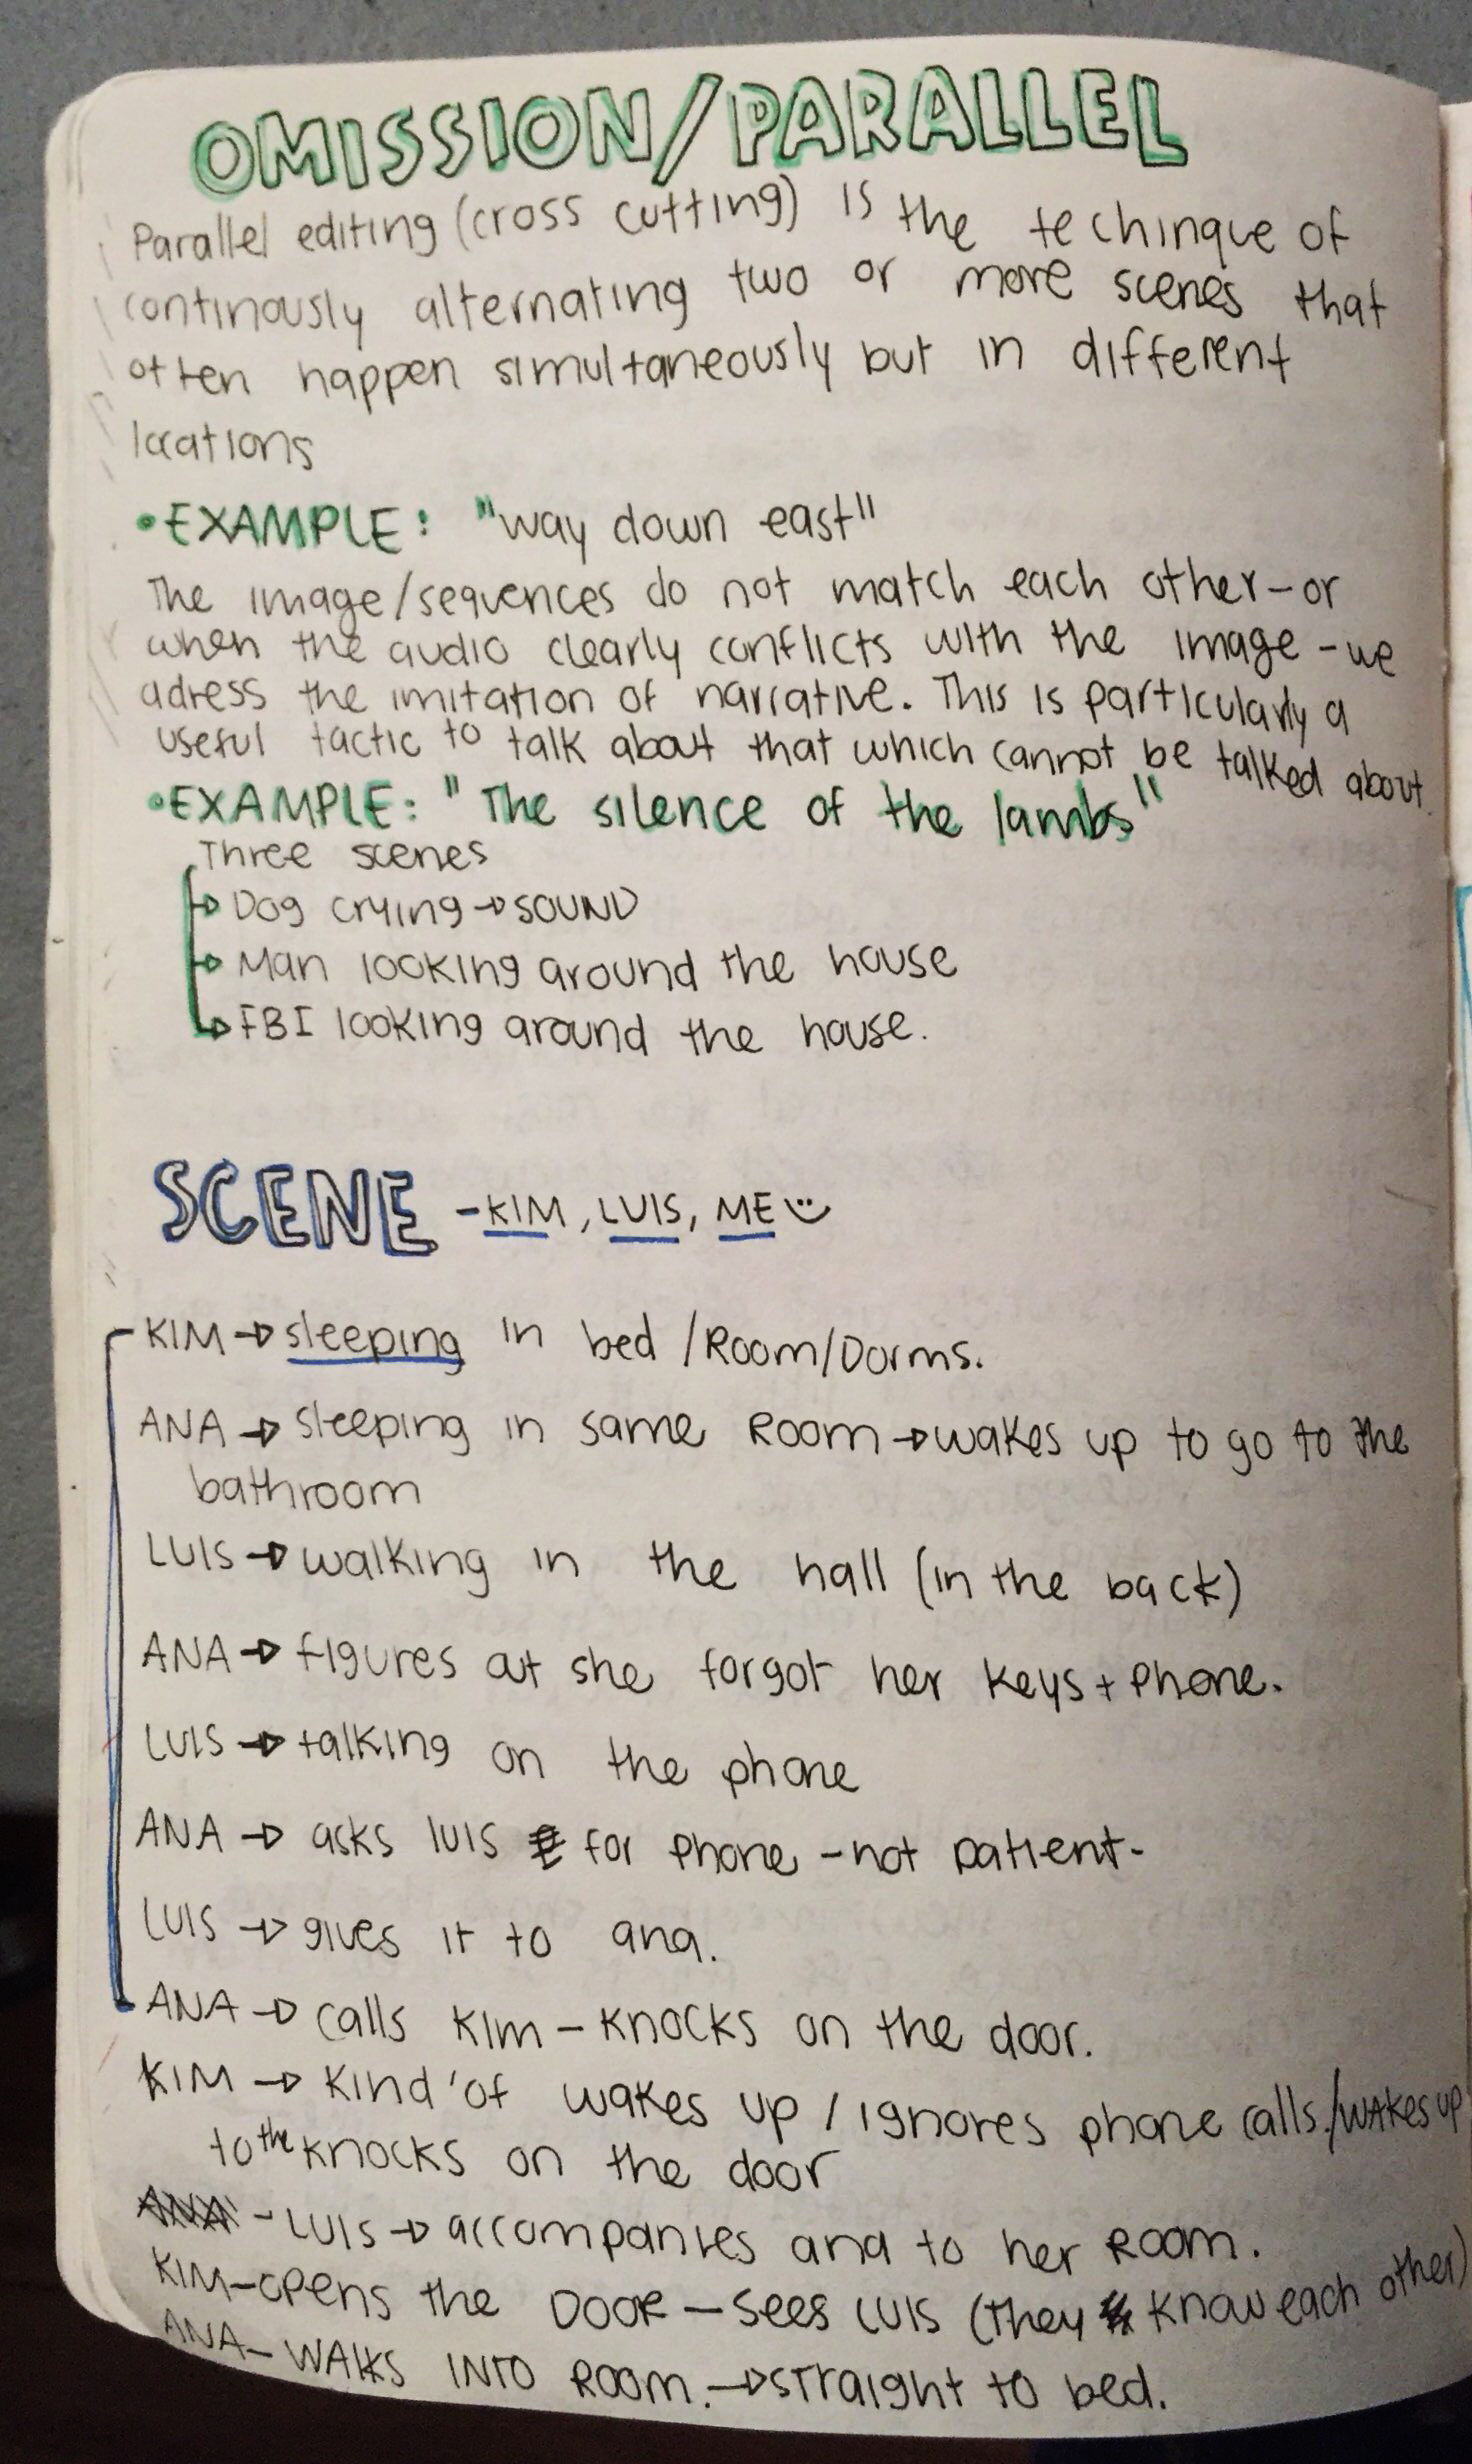 OMISSION/PARALLEL
Parallel editing (cross cutting) is the techinque of
continously alternating two or more scenes that
often happen simultaneously but in different
locations
•EXAMPLE: "way down east"
The image/sequences do not match each other-or
when the audio clearly conflicts with the image-we
adress the imitation of narrative. This is particularly a
useful tactic to talk about that which cannot be talked about.
•EXAMPLE: "The silence of the lambs"
Three scenes
→ Dog crying → SOUND
→ Man looking around the house
→ FBI looking around the house.
SCENE - KIM, LUIS, ME
KIM → sleeping in bed /Room/Dorms.
ANA → sleeping in same Room → wakes up to go to the
bathroom
LUIS → walking in the hall (in the back)
ANA → figures out she forgot her keys + phone.
LUIS → talking on the phone
ANA → asks luis for phone -not patient-
LUIS → gives it to ana.
ANA → calls Kim - knocks on the door.
KIM → kind'of wakes up / ignores phone calls./wakes up
to the knocks on the door
ANA - LUIS → accompanies ana to her Room.
KIM-opens the DOOR - sees LUIS (they know each other)
ANA- WALKS INTO ROOM. → straight to bed.